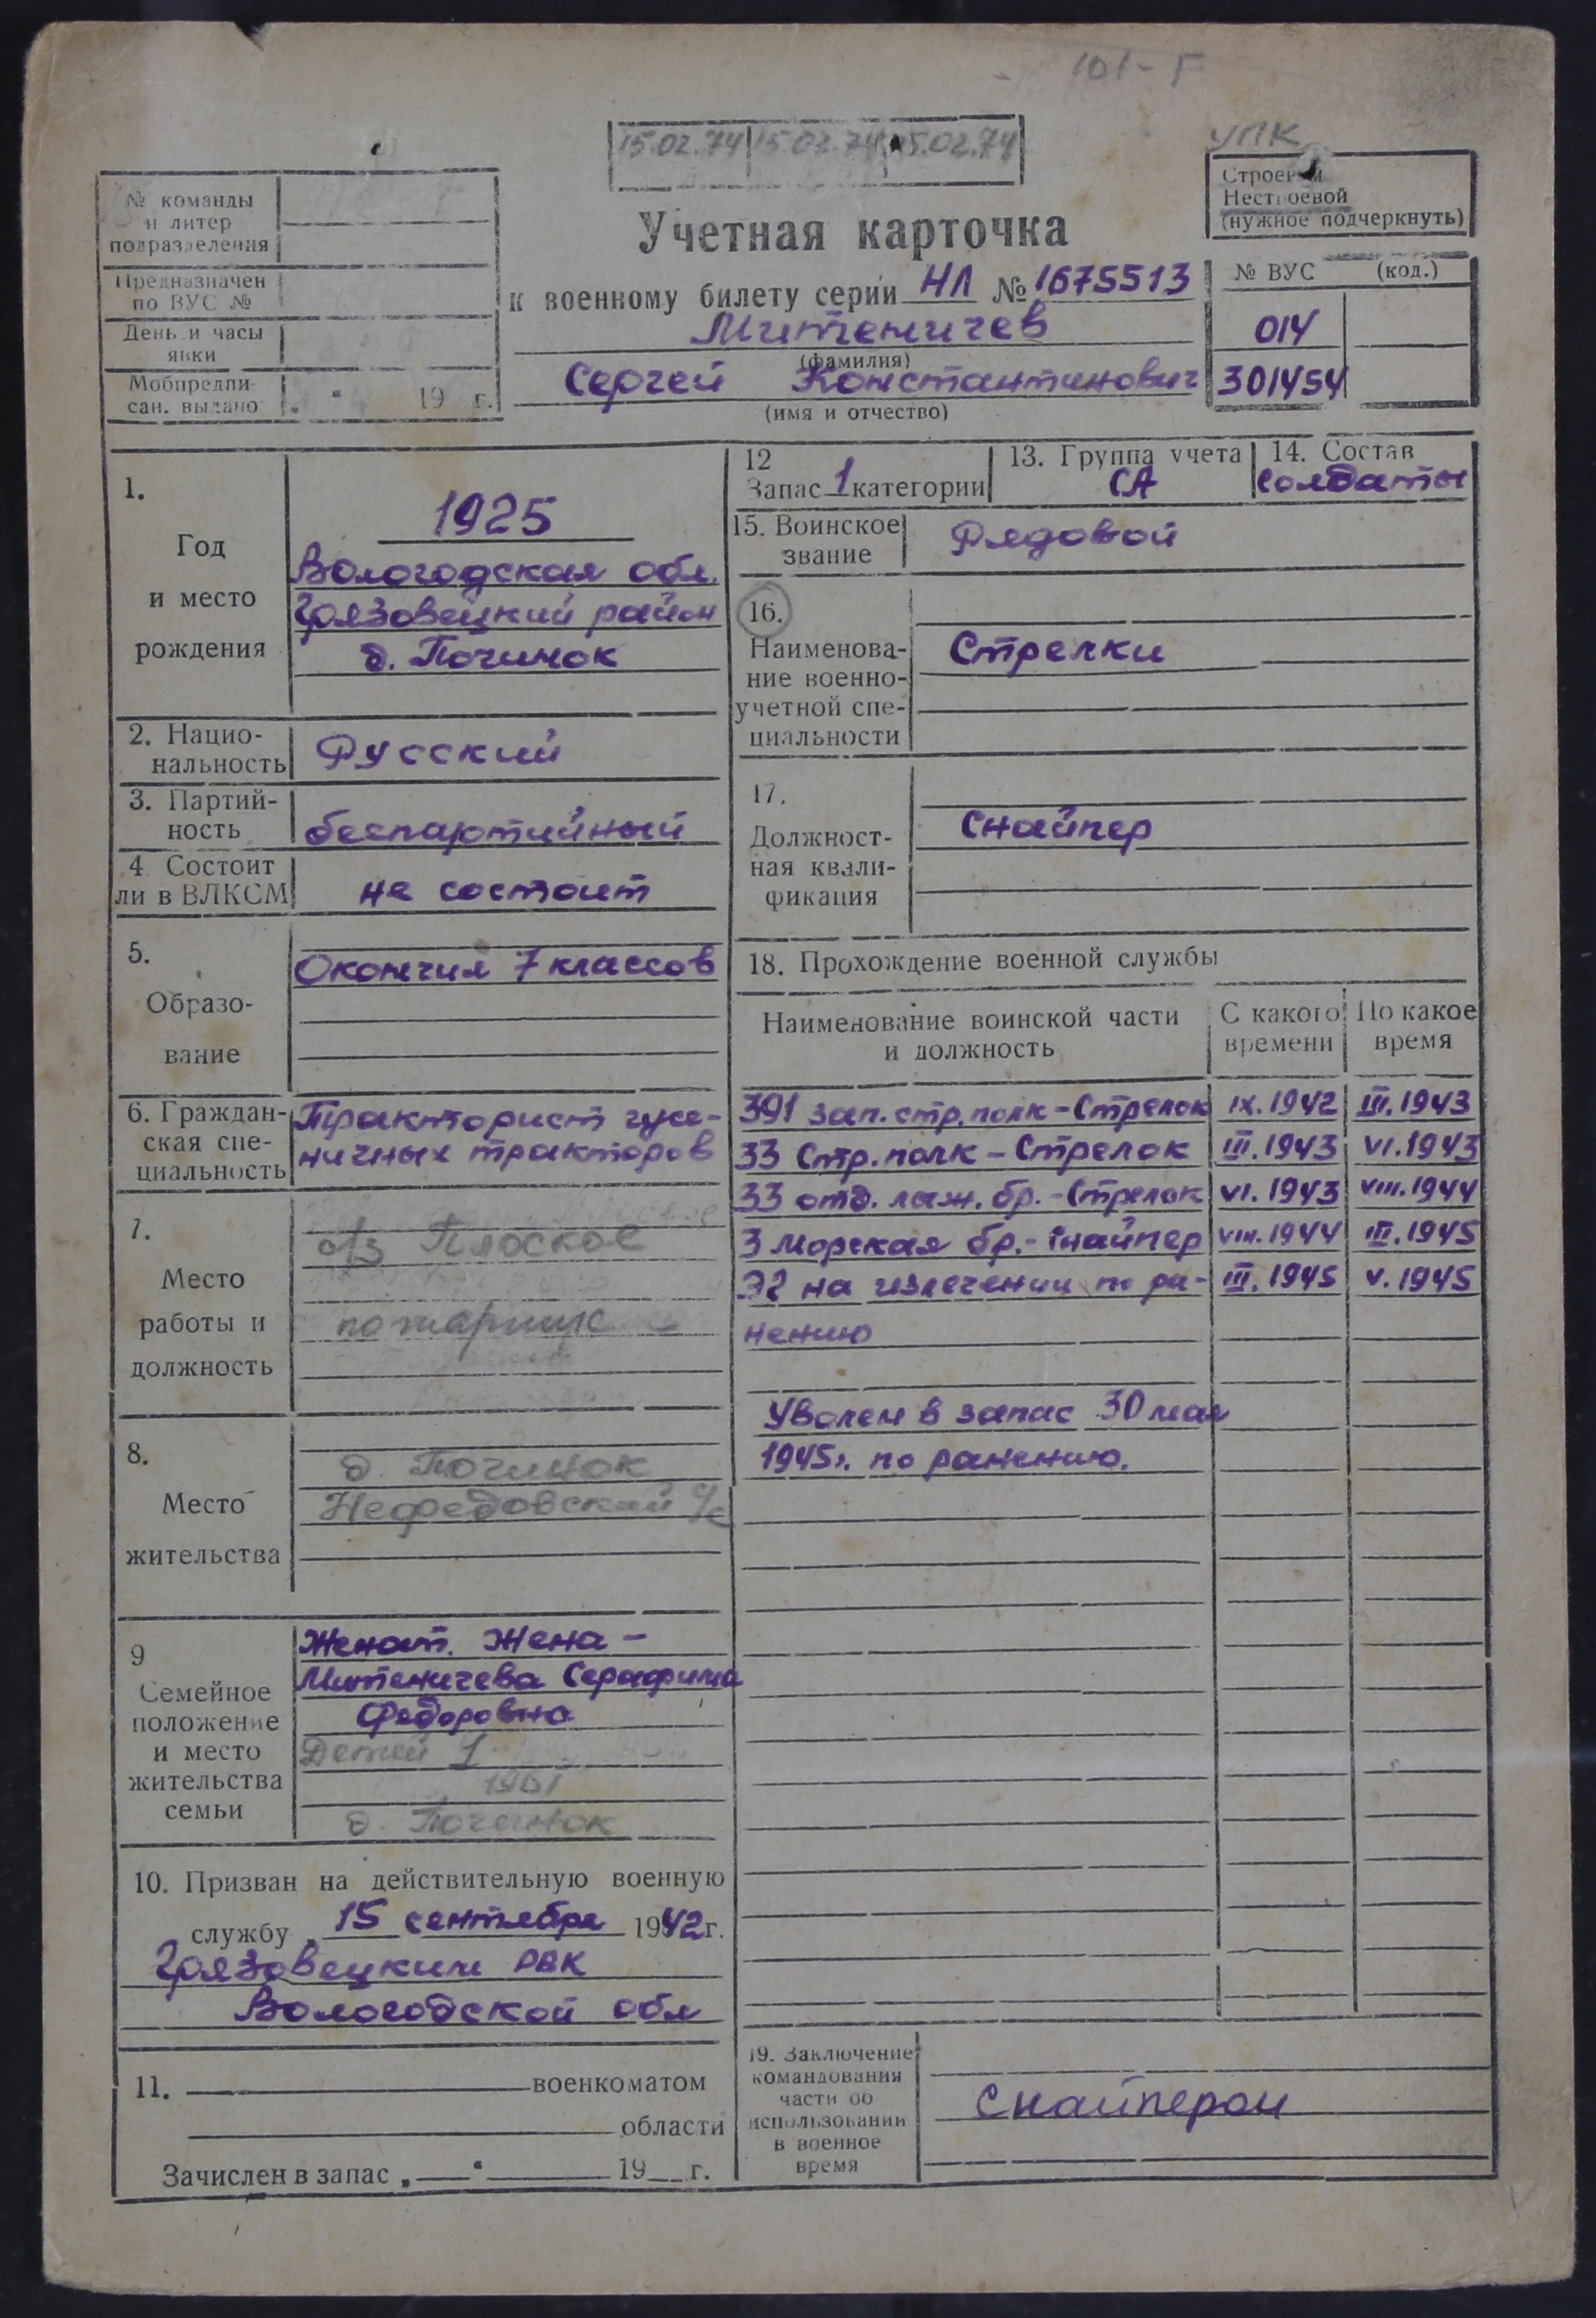 101-Г
15.02.74 15.02.74 15.02.74
УПК
№ команды
и литер
подразделения
Предназначен
по ВУС №
День и часы
явки
Мобпредпи-
сан. выдано „ “ 19 г.
Строевой
Нестроевой
(нужное подчеркнуть)
Учетная карточка
к военному билету серии НЛ № 1675513
Митеничев
(фамилия)
Сергей Константинович
(имя и отчество)
№ ВУС (код.)
014
301454
1.
Год
и место
рождения
1925
Вологодская обл.
Грязовецкий район
д. Починок
2. Нацио-
нальность
Русский
3. Партий-
ность
беспартийный
4 Состоит
ли в ВЛКСМ
не состоит
5.
Образо-
вание
Окончил 7 классов
6. Граждан-
ская спе-
циальность
Тракторист гусе-
ничных тракторов
7.
Место
работы и
должность
Плоское
пожарник
8.
Место
жительства
д. Починок
Нефедовский с/с
9
Семейное
положение
и место
жительства
семьи
Женат. Жена –
Митеничева Серафима
Федоровна
Детей 1
1961
д. Починок
10. Призван на действительную военную
службу 15 сентября 1942 г.
Грязовецким РВК
Вологодской обл
11. военкоматом
области
Зачислен в запас „ “ 19 г.
12
Запас 1 категории
13. Группа учета
СА
14. Состав
Солдаты
15. Воинское
звание
Рядовой
16.
Наименова-
ние военно-
учетной спе-
циальности
Стрелки
17.
Должност-
ная квали-
фикация
Снайпер
18. Прохождение военной службы
Наименование воинской части
и должность
С какого
времени
По какое
время
391 зап. стр. полк – Стрелок IX.1942 III.1943
33 Стр. полк – Стрелок III.1943 VI.1943
33 отд. лыж. бр. – Стрелок VI.1943 VIII.1944
3 Морская бр. – Снайпер VIII.1944 III.1945
ЭГ на излечении по ра- III.1945 V.1945
нению
Уволен в запас 30 мая
1945г. по ранению.
19. Заключение
командования
части об
использовании
в военное
время
Снайпером